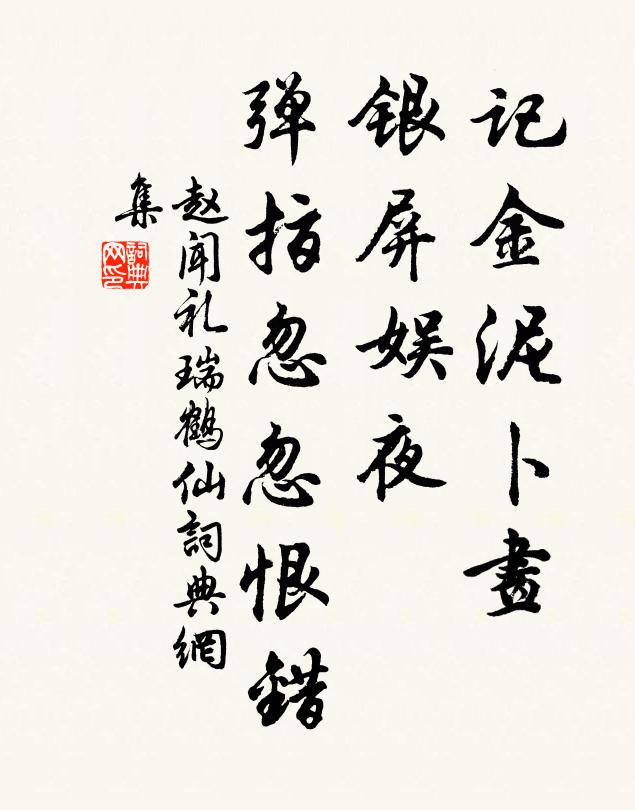 记金泥卜晝
银屏娱夜
弹指忽忽恨錯
赵闻礼瑞鹤仙詞典網
集
詞典网印